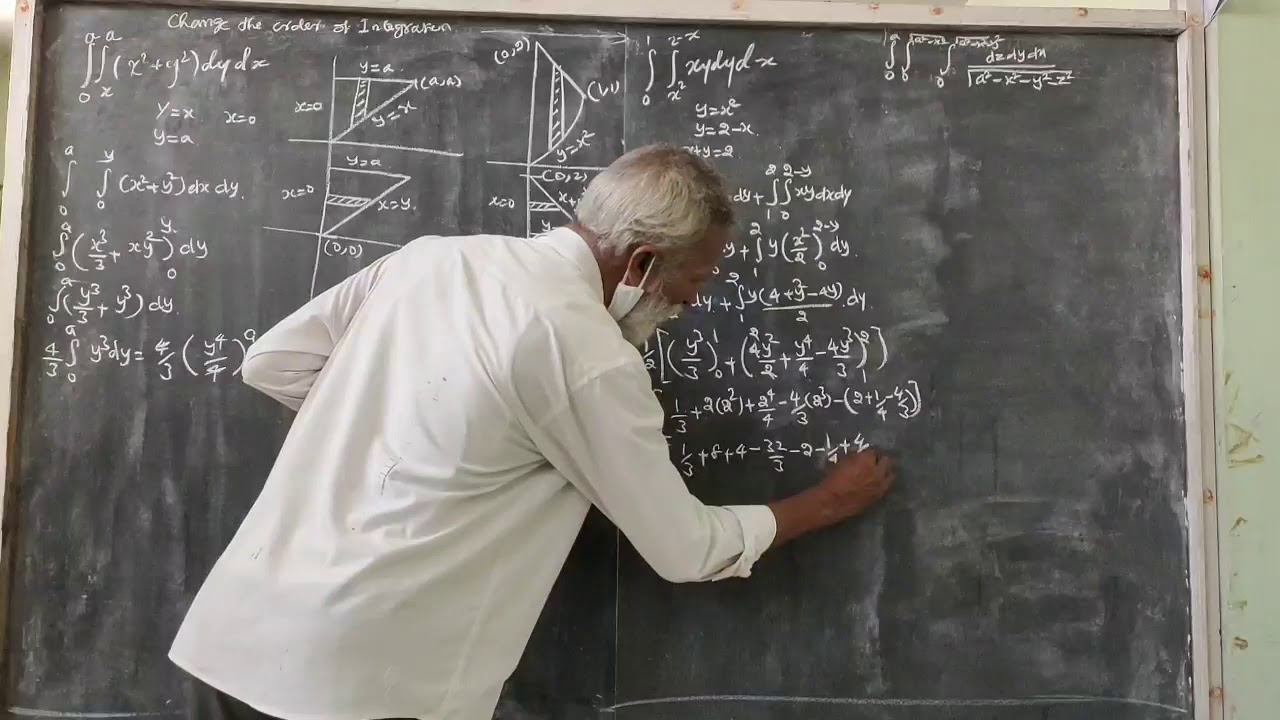 Change the order of Integration
∫₀ᵃ ∫ₓᵃ (x²+y²) dy dx
y=x x=0
y=a
∫₀ᵃ ∫₀ʸ (x²+y²) dx dy
∫₀ᵃ (x³/3 + xy²)₀ʸ dy
∫₀ᵃ (y³/3 + y³) dy
4/3 ∫₀ᵃ y³dy = 4/3 (y⁴/4)ᵃ
y=a
(a,a)
x=0
y=x
y=a
x=0
x=y
(0,0)
(0,2)
(1,1)
y=x²
(0,2)
x=0
x+
∫₀¹ ∫ₓ²²⁻ˣ xy dy dx
y=x²
y=2-x
x+y=2
dy + ∫₁² ∫₀²⁻ʸ xy dx dy
y + ∫₁² y (x²/2)₀²⁻ʸ dy
dy + ∫₁² y(4+y²-4y)/2 dy
1/2 [(y³/3)₀¹ + (4y²/2 + y⁴/4 - 4y³/3)₁²]
1/3 + 2(2²) + 2⁴/4 - 4/3(2³) - (2+1/4-4/3)]
1/3 + 8 + 4 - 32/3 - 2 - 1/4 + 4/
∫₀ᵃ ∫₀^√(a²-x²) ∫₀^√(a²-x²-y²) dz dy dx / √(a²-x²-y²-z²)